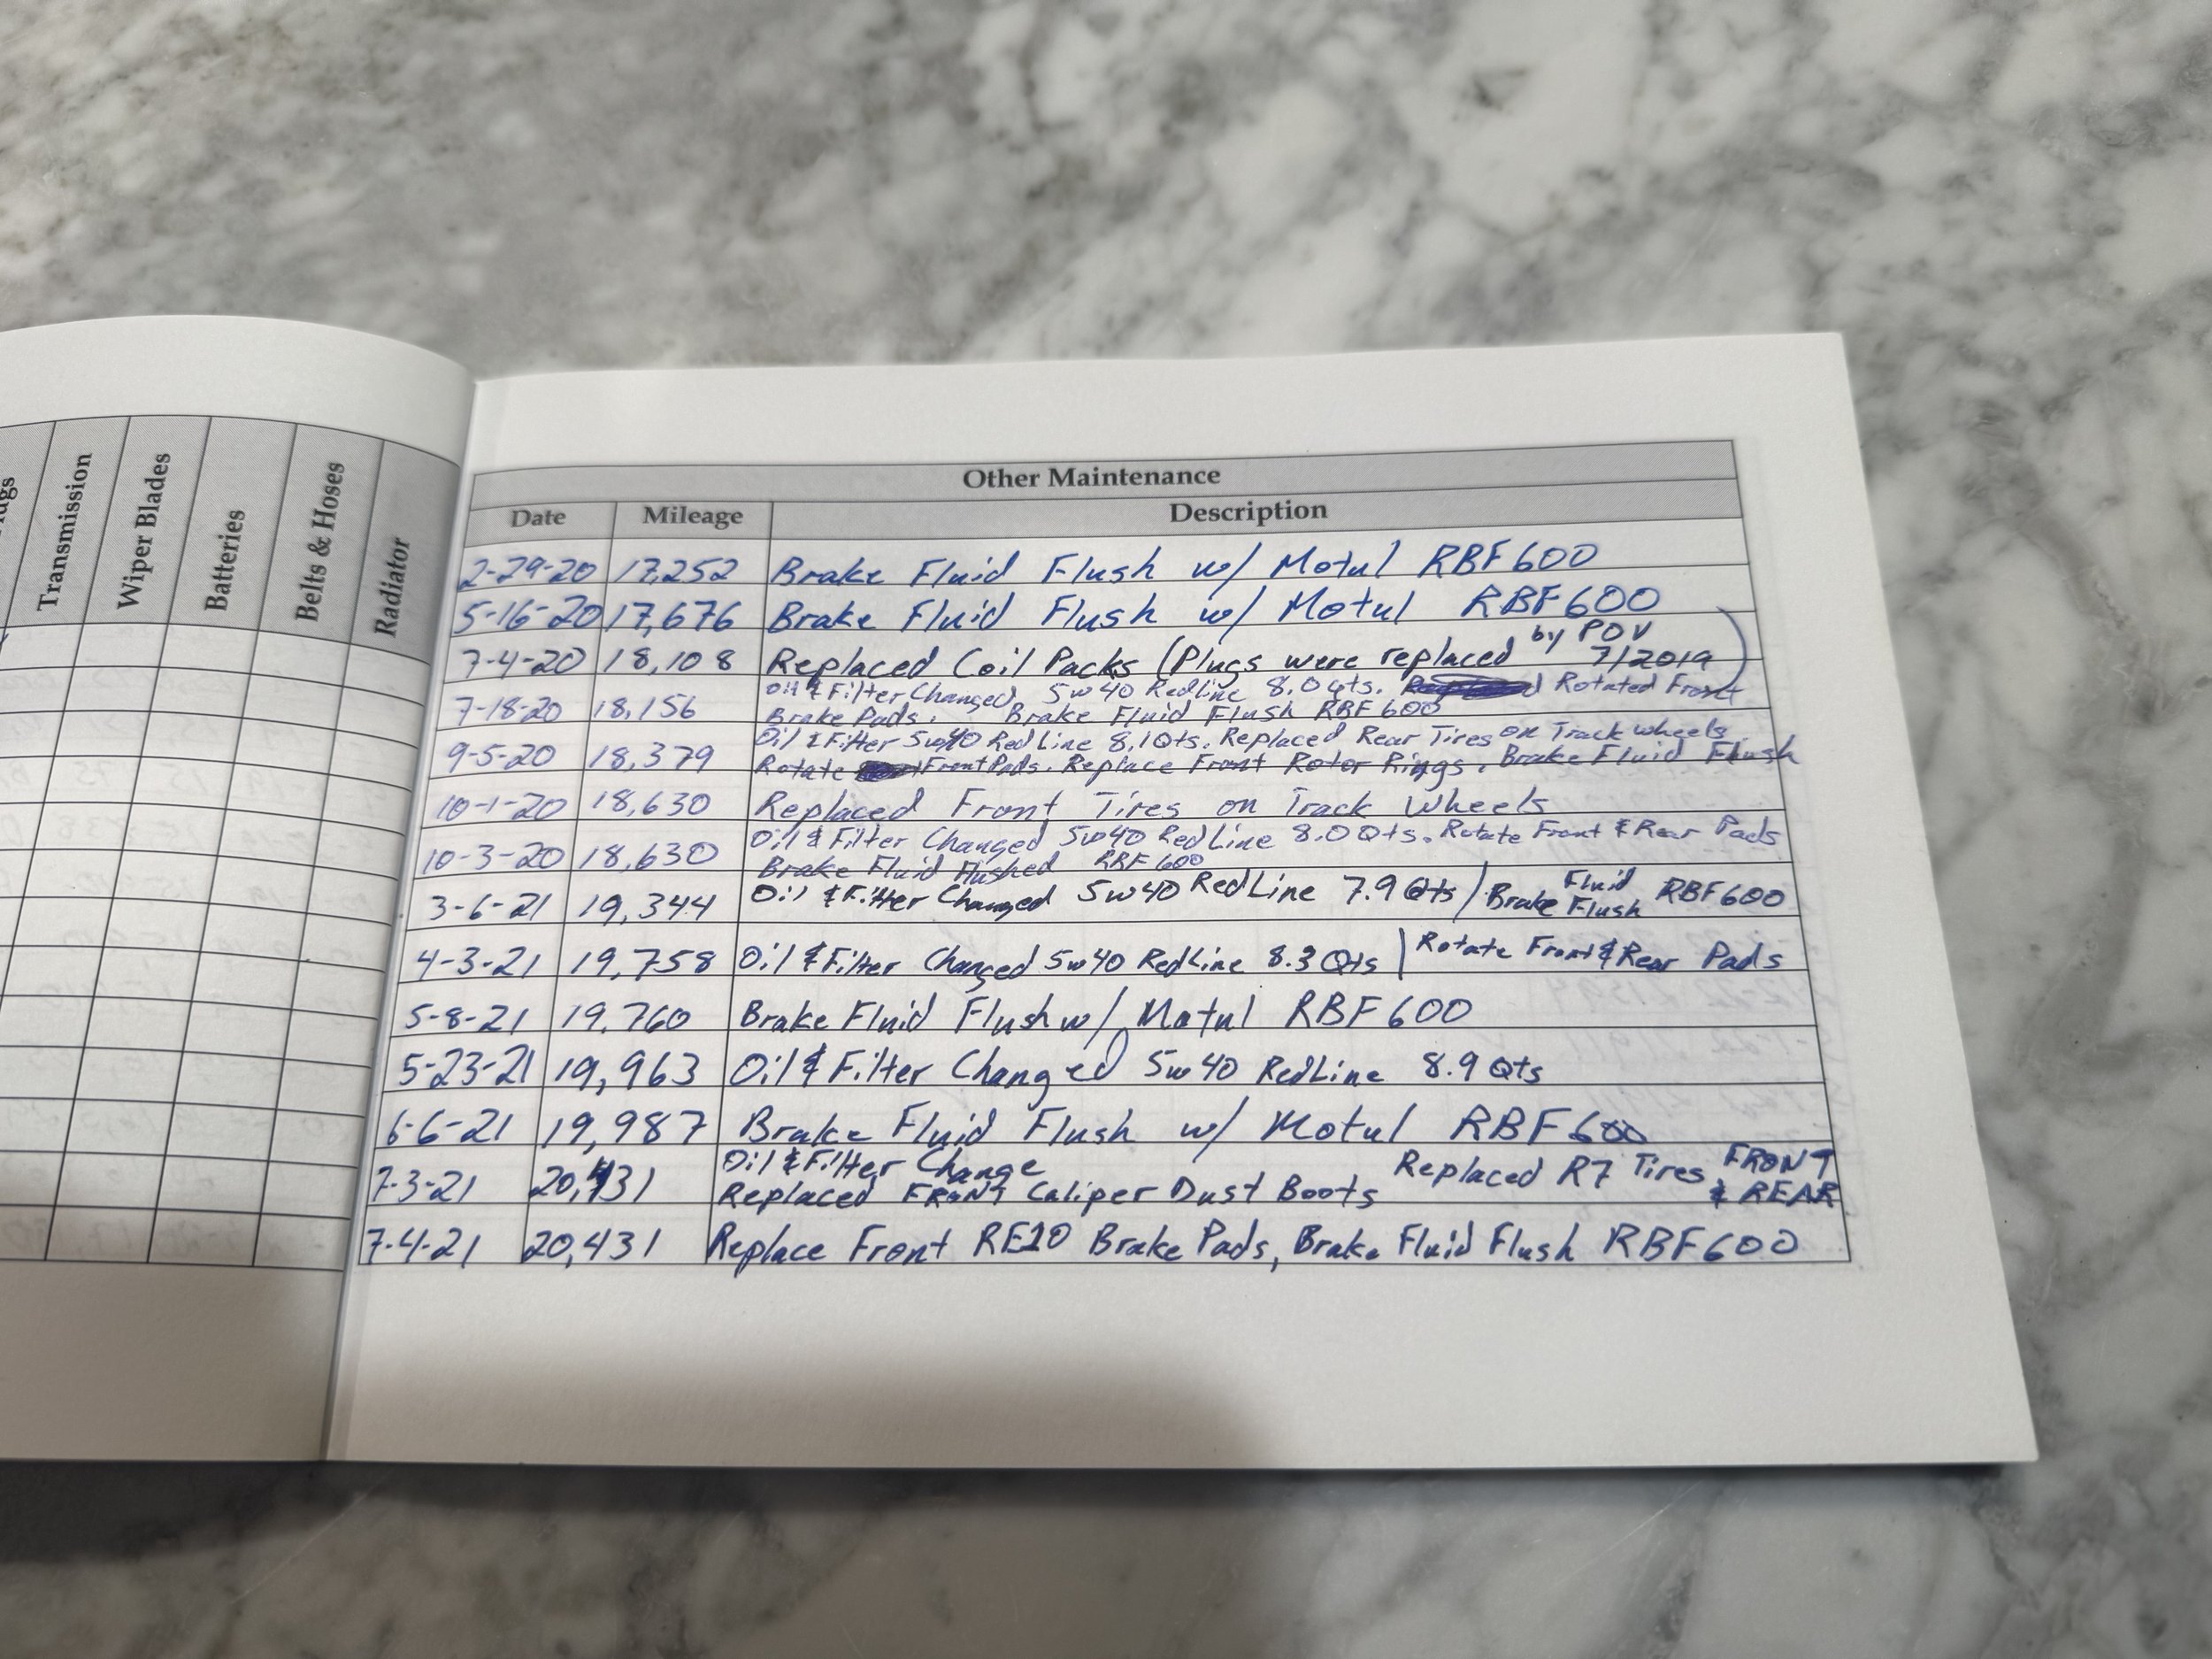 Transmission
Wiper Blades
Batteries
Belts & Hoses
Radiator
Other Maintenance
Date Mileage Description
2-29-20 17,252 Brake Fluid Flush w/ Motul RBF600
5-16-20 17,676 Brake Fluid Flush w/ Motul RBF600
7-4-20 18,108 Replaced Coil Packs (Plugs were replaced by POV 7/2019)
7-18-20 18,156 Oil & Filter Changed 5w40 RedLine 8.0 Qts. Rotated Front
Brake Pads. Brake Fluid Flush RBF600
9-5-20 18,379 Oil & Filter 5w40 RedLine 8.1 Qts. Replaced Rear Tires on Track wheels.
Rotate Front Pads. Replace Front Rotor Rings. Brake Fluid Flush
10-1-20 18,630 Replaced Front Tires on Track Wheels
10-3-20 18,630 Oil & Filter Changed 5w40 RedLine 8.0 Qts. Rotate Front & Rear Pads
Brake Fluid Flushed RBF600
3-6-21 19,344 Oil & Filter Changed 5w40 RedLine 7.9 Qts / Brake Fluid Flush RBF600
4-3-21 19,758 Oil & Filter Changed 5w40 RedLine 8.3 Qts | Rotate Front & Rear Pads
5-8-21 19,760 Brake Fluid Flush w/ Motul RBF600
5-23-21 19,963 Oil & Filter Changed 5w40 RedLine 8.9 Qts
6-6-21 19,987 Brake Fluid Flush w/ Motul RBF600
7-3-21 20,431 Oil & Filter Change Replaced R7 Tires FRONT & REAR
Replaced FRONT Caliper Dust Boots
7-4-21 20,431 Replace Front RE10 Brake Pads, Brake Fluid Flush RBF600